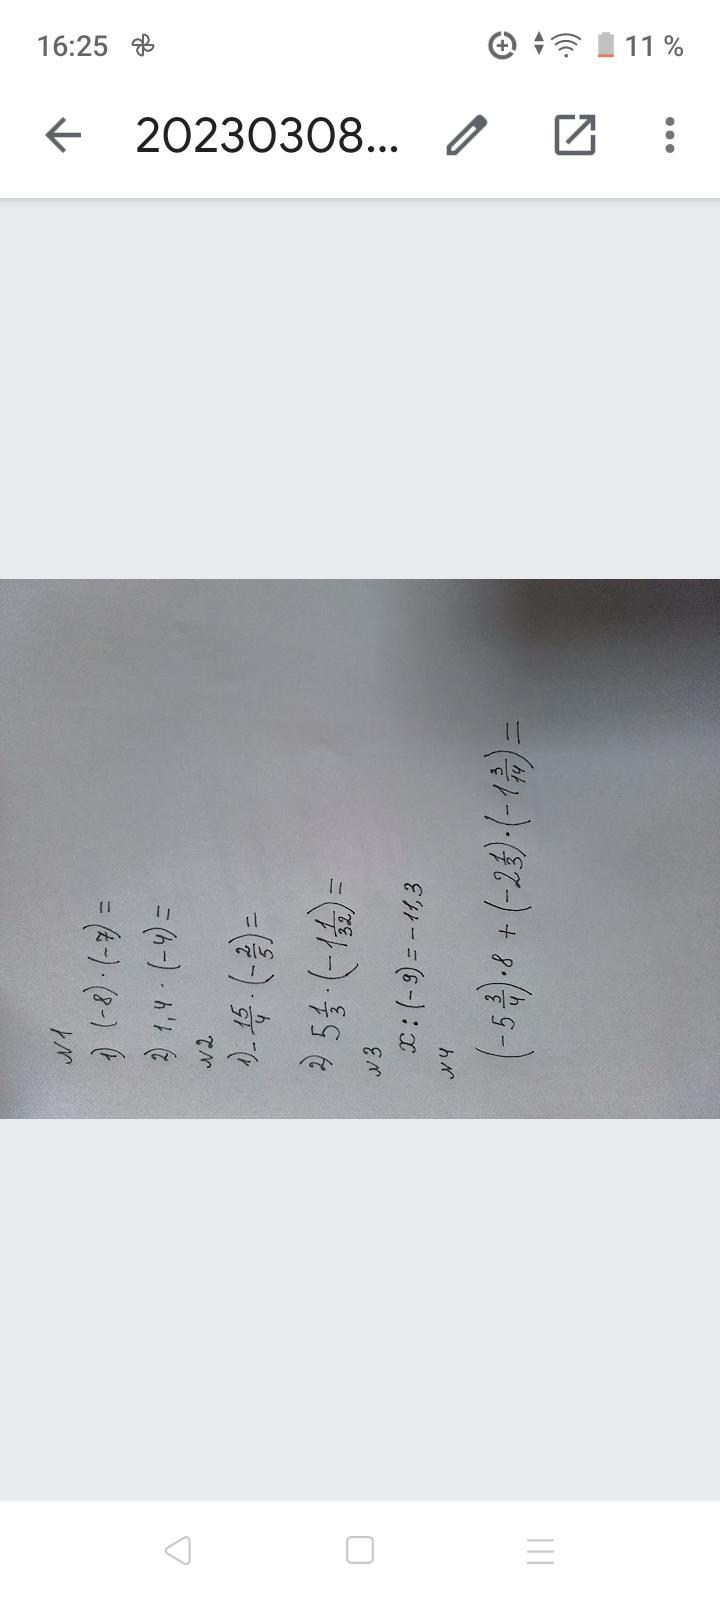 16:25 11 %
20230308...
№1
1) (-8) · (-7) =
2) 1,4 · (-4) =
№2
1) - 15/4 · (- 2/5) =
2) 5 1/3 · (- 1 1/32) =
№3
x : (-9) = - 11,3
№4
(- 5 3/4) · 8 + (- 2 1/3) · (- 1 3/14) =